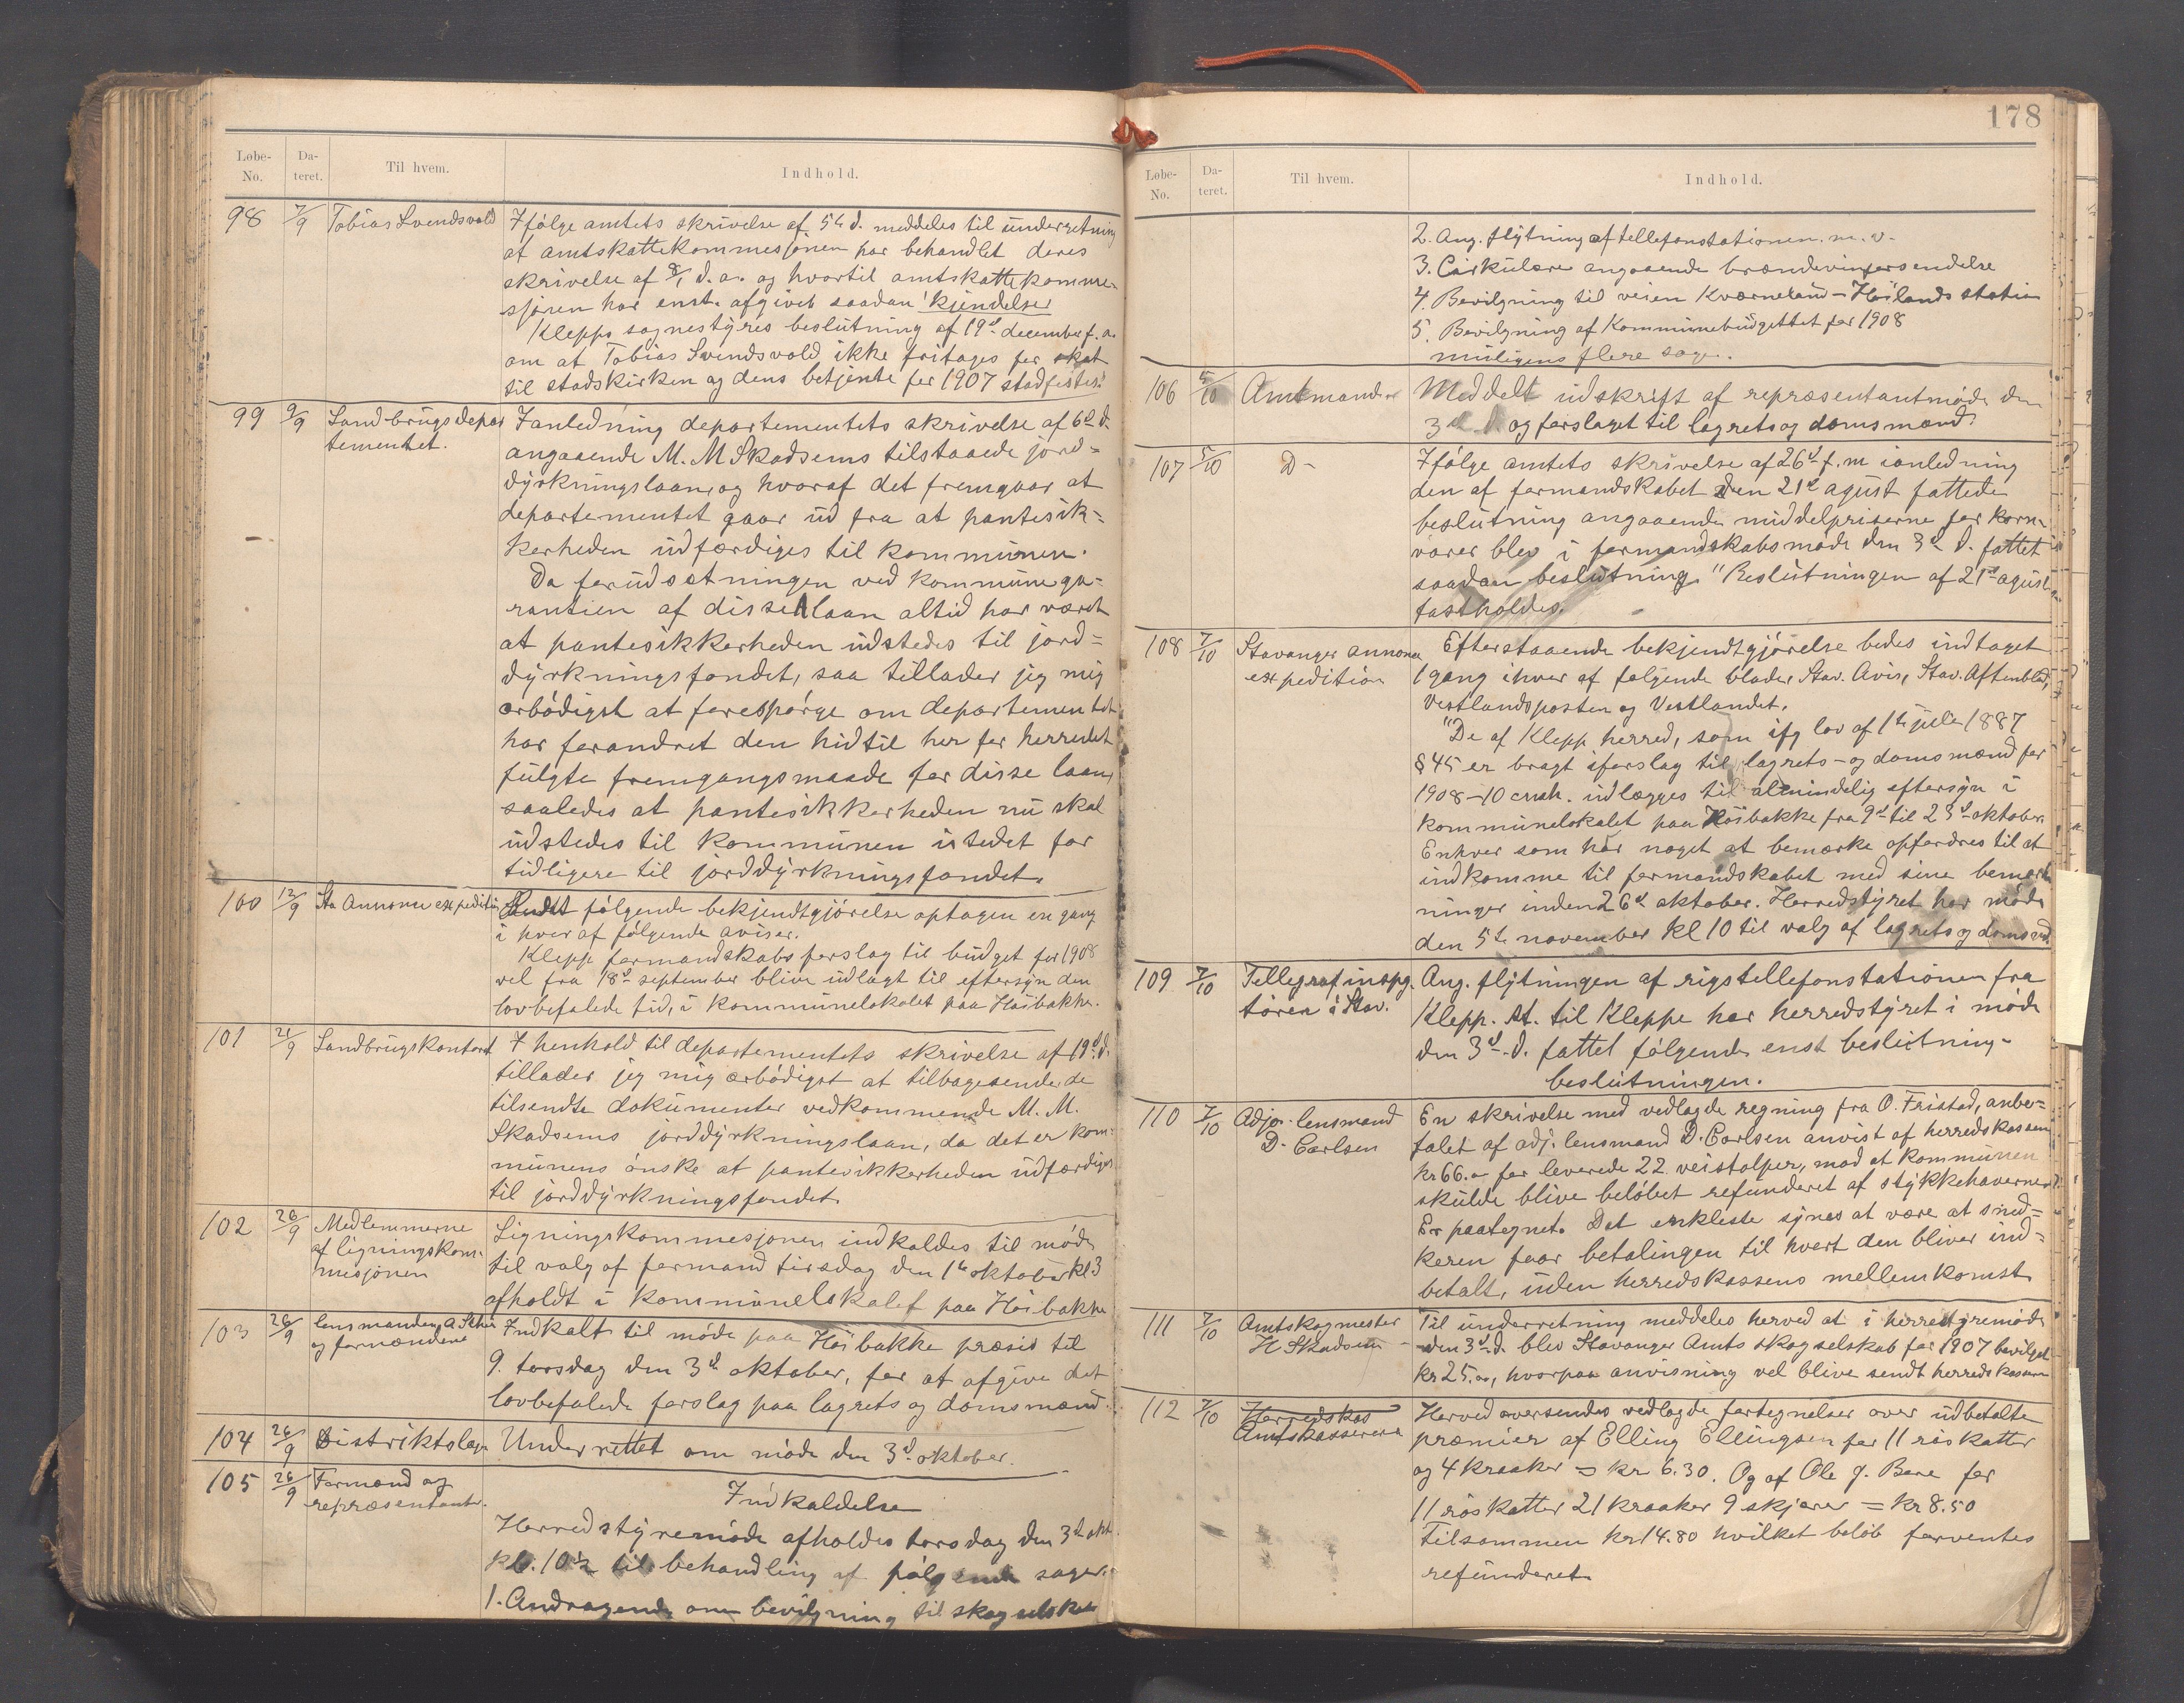 178
Løbe-No. Da-teret. Til hvem. Indhold.
98 7/9 Tobias Svendsvold Ifølge amtets skrivelse af 5te d. meddeles til underretning
at amtskattekommesjonen har behandlet deres
skrivelse af 8/1 d.a. og hvortil amtskattekomme-
sjonen har enst. afgivet saadan kjendelse
Klepps sognestyres beslutning af 19d december f.a.
om at Tobias Svendsvold ikke fritages for skat
til stadskirken og dens betjente for 1907 stadfestes.
99 9/9 Landbrugsdepar
tementet.
I anledning departementets skrivelse af 6te d.
angaaende M. M Skadsems tilstaaede jord-
dyrkningslaan, og hvoraf det fremgaar at
departementet gaar ud fra at pantesik-
kerheden udfærdiges til kommunen.
Da forudsætningen ved kommunega-
rantien af disse laan altid har været
at pantesikkerheden udstedes til jord-
dyrkningsfondet, saa tillader jeg mig
ærbødigst at forespørge om departementet
har forandret den hidtil her for herredet
fulgte fremgangsmaade for disse laan,
saaledes at pantesikkerheden nu skal
udstedes til kommunen istedet for
tidligere til jorddyrkningsfondet.
100 12/9 Sta Annonce expedition Sendt følgende bekjendtgjørelse optagen en gang
i hver af følgende aviser.
Klepp formandskabs forslag til budget for 1908
vel fra 18d september blive udlagt til eftersyn den
lovbefalede tid, i kommunelokalet paa Høibakke.
101 21/9 Landbrugskontoret I henhold til departementets skrivelse af 19d d.
tillader jeg mig ærbødigst at tilbagesende de
tilsendte dokumenter vedkommende M. M.
Skadsems jorddyrkningslaan, da det er kom-
munens ønske at pantesikkerheden udfærdiges
til jorddyrkningsfondet.
102 26/9 Medlemmerne
af ligningskom-
mesjonen
Ligningskommesjonen indkaldes til møde
til valg af formand tirsdag den 1te oktober kl 3
afholdt i kommunelokalet paa Høibakke
103 26/9 lensmanden
og formændene
Indkalt til møde paa Høibakke præsis kl
9. torsdag den 3d oktober, for at afgive det
lovbefalede forslag paa lagrets og domsmænd.
104 26/9 Distriktslæge Underrettet om møde den 3d oktober.
105 26/9 Formænd og
repræsentanter.
Indkaldelse
Herredstyremøde afholdes torsdag den 3d okt.
kl. 10½ til behandling af følgende sager.
1. Andragende om bevilgning til skogselskab
Løbe-No. Da-teret. Til hvem. Indhold.
2. Ang. flytning af tellefonstationen. m.v.
3. Cirkulære angaaende brændevinforsendelse
4. Bevilgning til veien Kværneland-Høilands station
5. Bevilgning af Kommunebudgettet for 1908
muligens flere sager.
106 5/10 Amtmanden Meddelt udskrift af repræsentantmøde den
3d d. og forslaget til lagrets og domsmænd
107 5/10 D- Ifølge amtets skrivelse af 26d f.m ianledning
den af formandskabet den 21d agust fattede
beslutning angaaende middelpriserne for korn-
varer blev i formandskabsmøde den 3d d. fattet
saadan beslutning. "Beslutningen af 21d agust
fastholdes.
108 7/10 Stavanger annonce
expedition
Efterstaaende bekjendtgjørelse bedes indtaget
1 gang i hver af følgende blader, Stav. Avis, Stav. Aftenblad,
Vestlandsposten og Vestlandet.
"De af Klepp herred, som ifg lov af 1te juli 1887
§ 45 er bragt i forslag til lagrets- og domsmænd for
1908-10 udlægges til almindelig eftersyn i
kommunelokalet paa Høibakke fra 9d til 23d oktober
Enhver som har noget at bemærke opfordres til at
indkomme til formandskabet med sine bemærk
ninger inden 26d oktober. Herredstyret har møde
den 5te november kl 10 til valg af lagrets og domsmd
109 7/10 Tellegrafinspg.
tøren i Stav.
Ang. flytningen af rigstellefonstationen fra
Klepp. St. til Kleppe har herredstyret i møde
den 3d d. fattet følgende enst beslutning-
beslutningen.
110 7/10 Adjo. lensmand
D. Carlsen
En skrivelse med vedlagde regning fra O. Fristad, anbe-
falet af adj. lensmand D. Carlsen anvist af herredskassen
kr 66.00 for leverede 22 veistolper, mod at kommunen
skulde blive beløbet refunderet af stykkehaverne.
Er paategnet. Det enkleste synes at være at sned-
keren faar betalingen til hvert den bliver ind-
betalt, uden herredskassens mellemkomst
111 7/10 Amtskogmester
H Skadsem
Til underretning meddeles herved at i herredstyremøde
den 3d d. blev Stavanger Amts skogselskab for 1907 bevilget
kr 25.00, hvorpaa anvisning vel blive sendt herredskassen
112 7/10 Herredskas
Amtskassereren
Herved oversendes vedlagde fortegnelser over udbetalte
præmier af Elling Ellingsen for 11 røskatter
og 4 kraaker = kr 6.30. Og af Ole J. Bore for
11 røskatter 21 kraaker 9 skjærer = kr 8.50
Tilsammen kr 14.80 hvilket beløb forventes
refunderet.